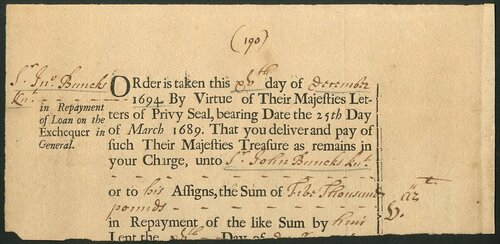 (190)
Sr. Jno. Buncks
Knt.
in Repayment
of Loan on the
Exchequer in
General.
ORder is taken this xth day of December
1694. By Virtue of Their Majesties Let-
ters of Privy Seal, bearing Date the 25th Day
of March 1689. That you deliver and pay of
such Their Majesties Treasure as remains in
your Charge, unto Sr. John Buncks Knt.
or to his Assigns, the Sum of Five Thousand
pounds
in Repayment of the like Sum by him
Lent the Day of